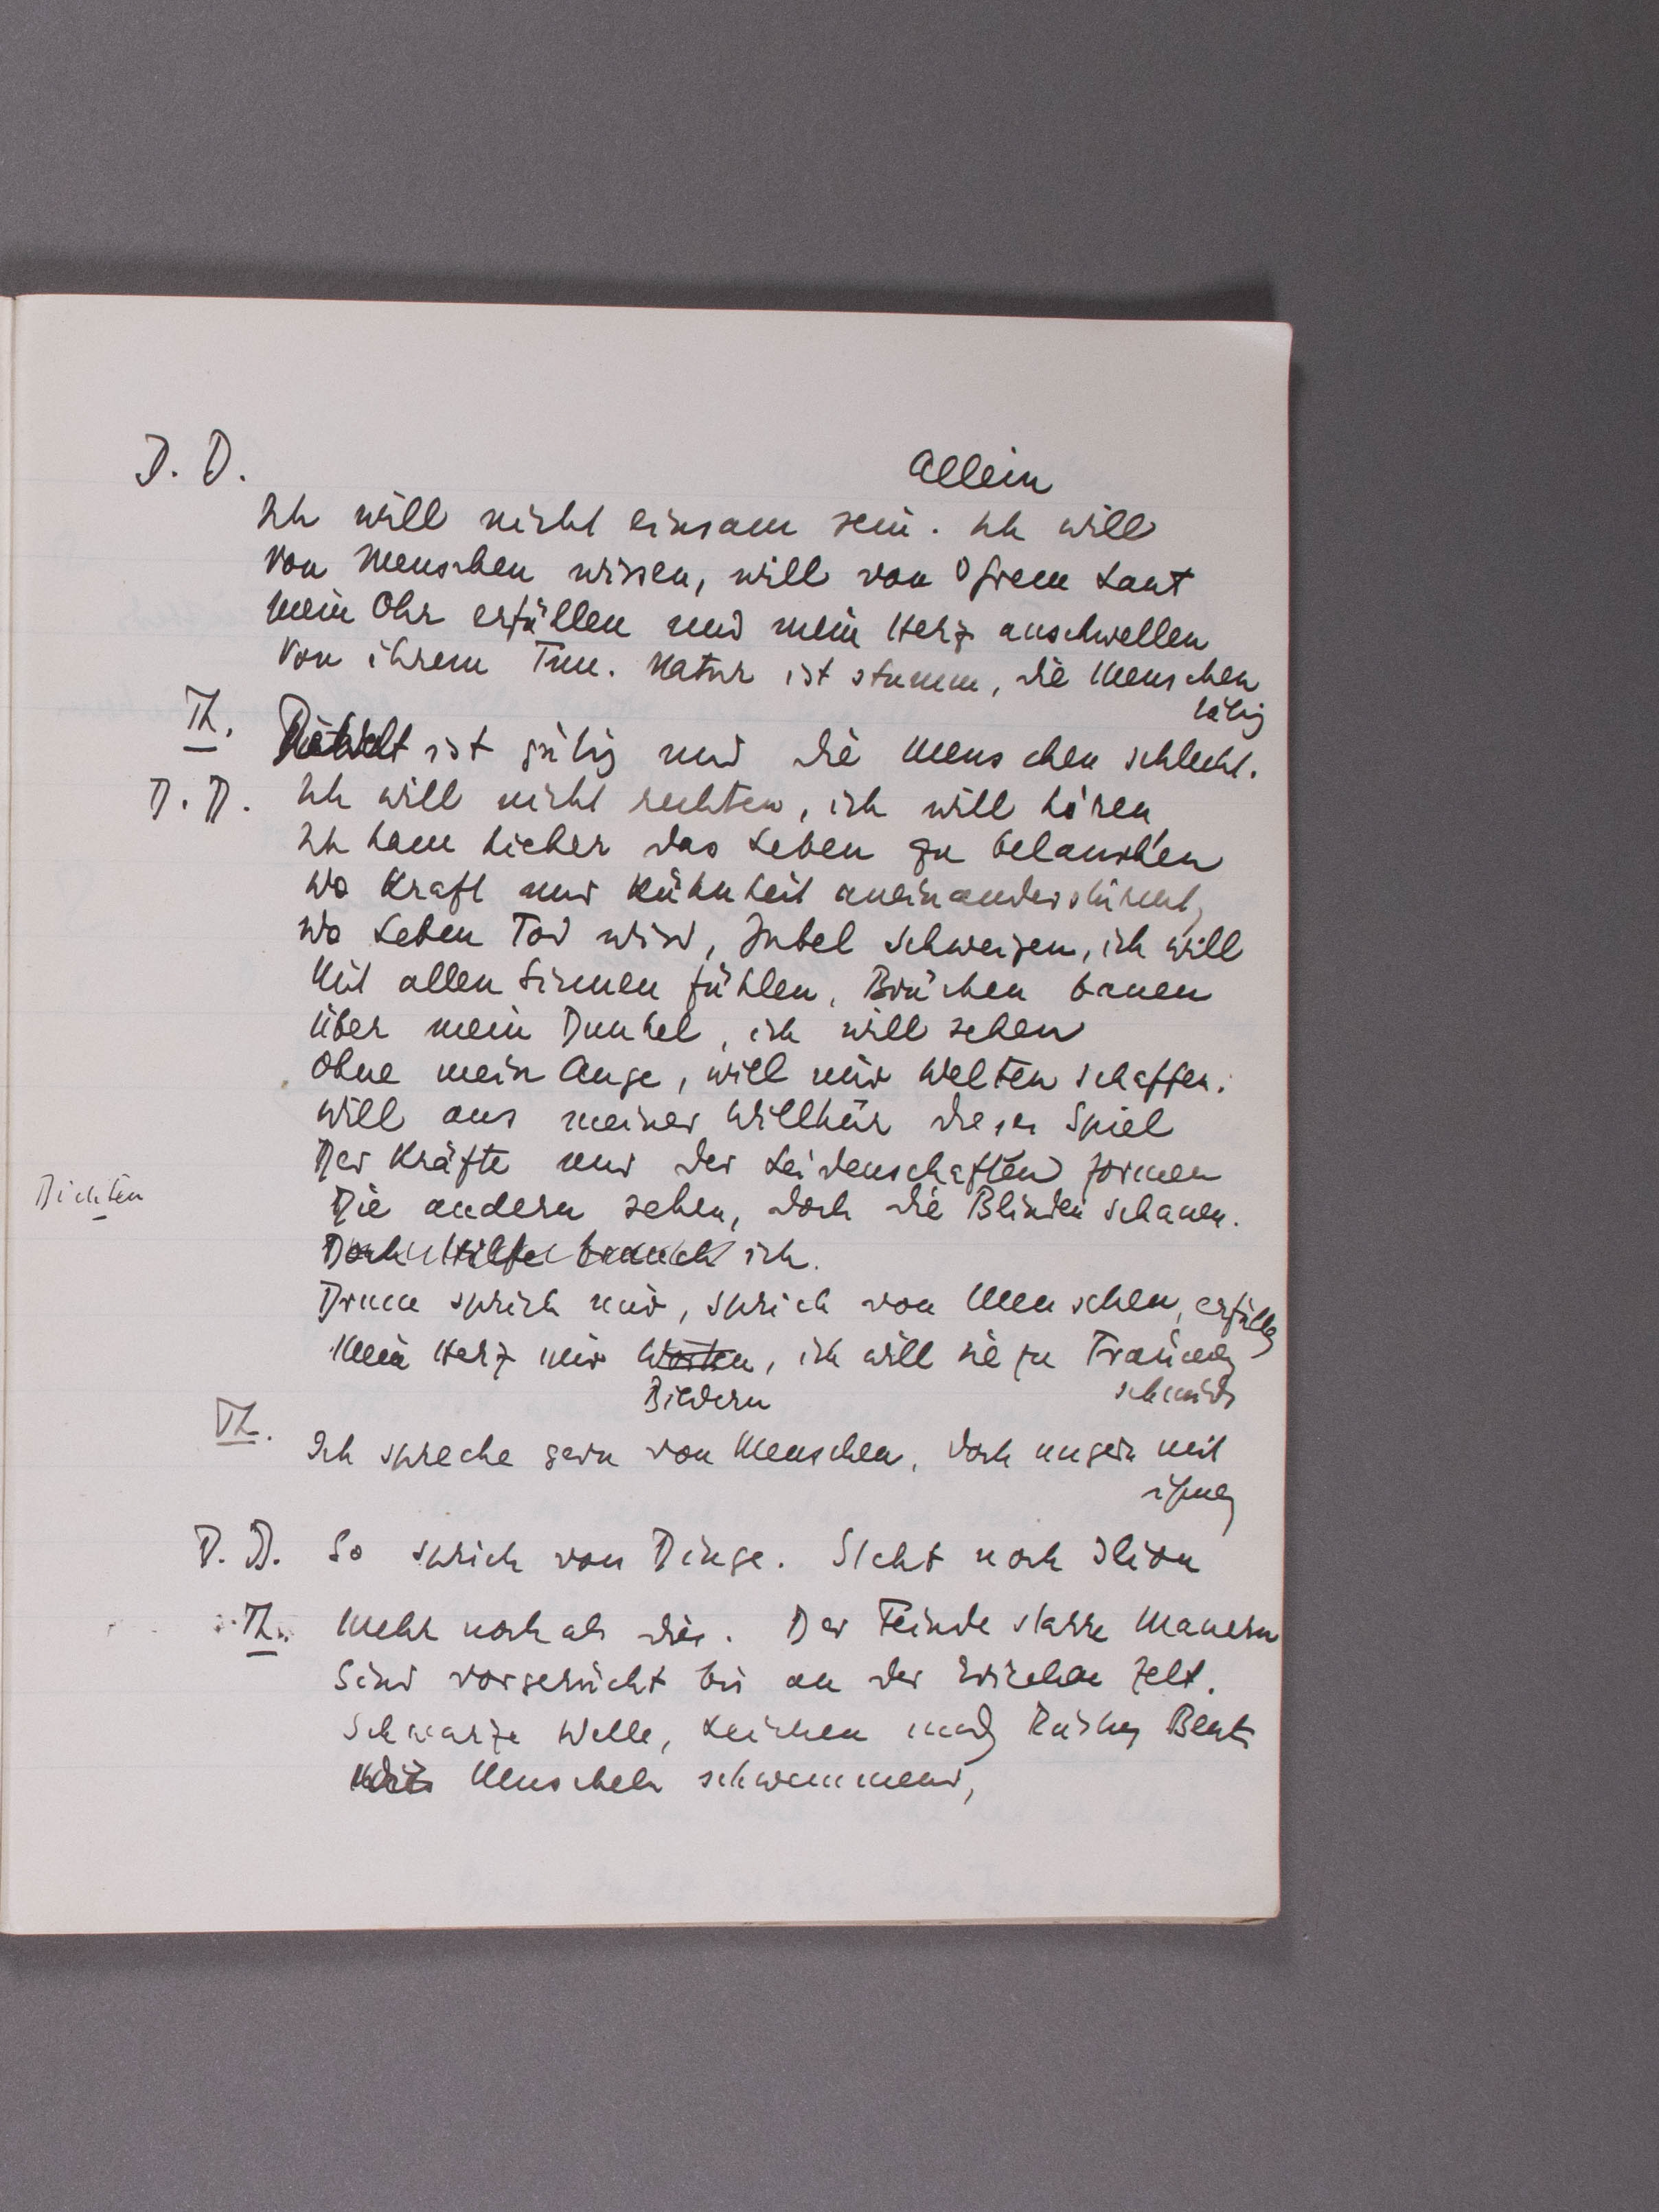 D. D.
Allein
Ich will nicht einsam sein. Ich will
von Menschen wissen, will von Ihrem Laut
Mein Ohr erfüllen und mein Herz anschwellen
Von ihrem Tun. Natur ist stumm, die Menschen
Th.
ist gütig und die Menschen schlecht.
D. D. Ich will nicht rechten, ich will hören
Ich kam hieher das Leben zu belauschen
Wo Kraft und Kühnheit aneinanderstürmt,
Wo Leben Tod wird, Jubel Schweigen, ich will
Mit allen Sinnen fühlen, Brücken bauen
Über mein Dunkel, ich will sehen
Ohne mein Auge, will mir Welten schaffen.
Will aus meiner Willkür dieses Spiel
Der Kräfte und der Leidenschaften formen
Dichten
Die andern sehen, doch die Blinden schauen.
Doch Hilfe brauch ich.
Drum sprich mir, sprich von Menschen, erfülle
Mein Herz mir Worten, ich will sie zu Träumen
Bildern
schmieden
Th.
Ich spreche gern von Menschen, doch ungern mit
ihnen
D. D. So sprich von Dinge. Steht noch Ilion
Th. Mehr noch als dies. Der Feinde starre Mauern
Sind vorgerückt bis an der Griechen Zelt.
Schwarze Welle, Leichen und Blut
Muscheln schwemmend,